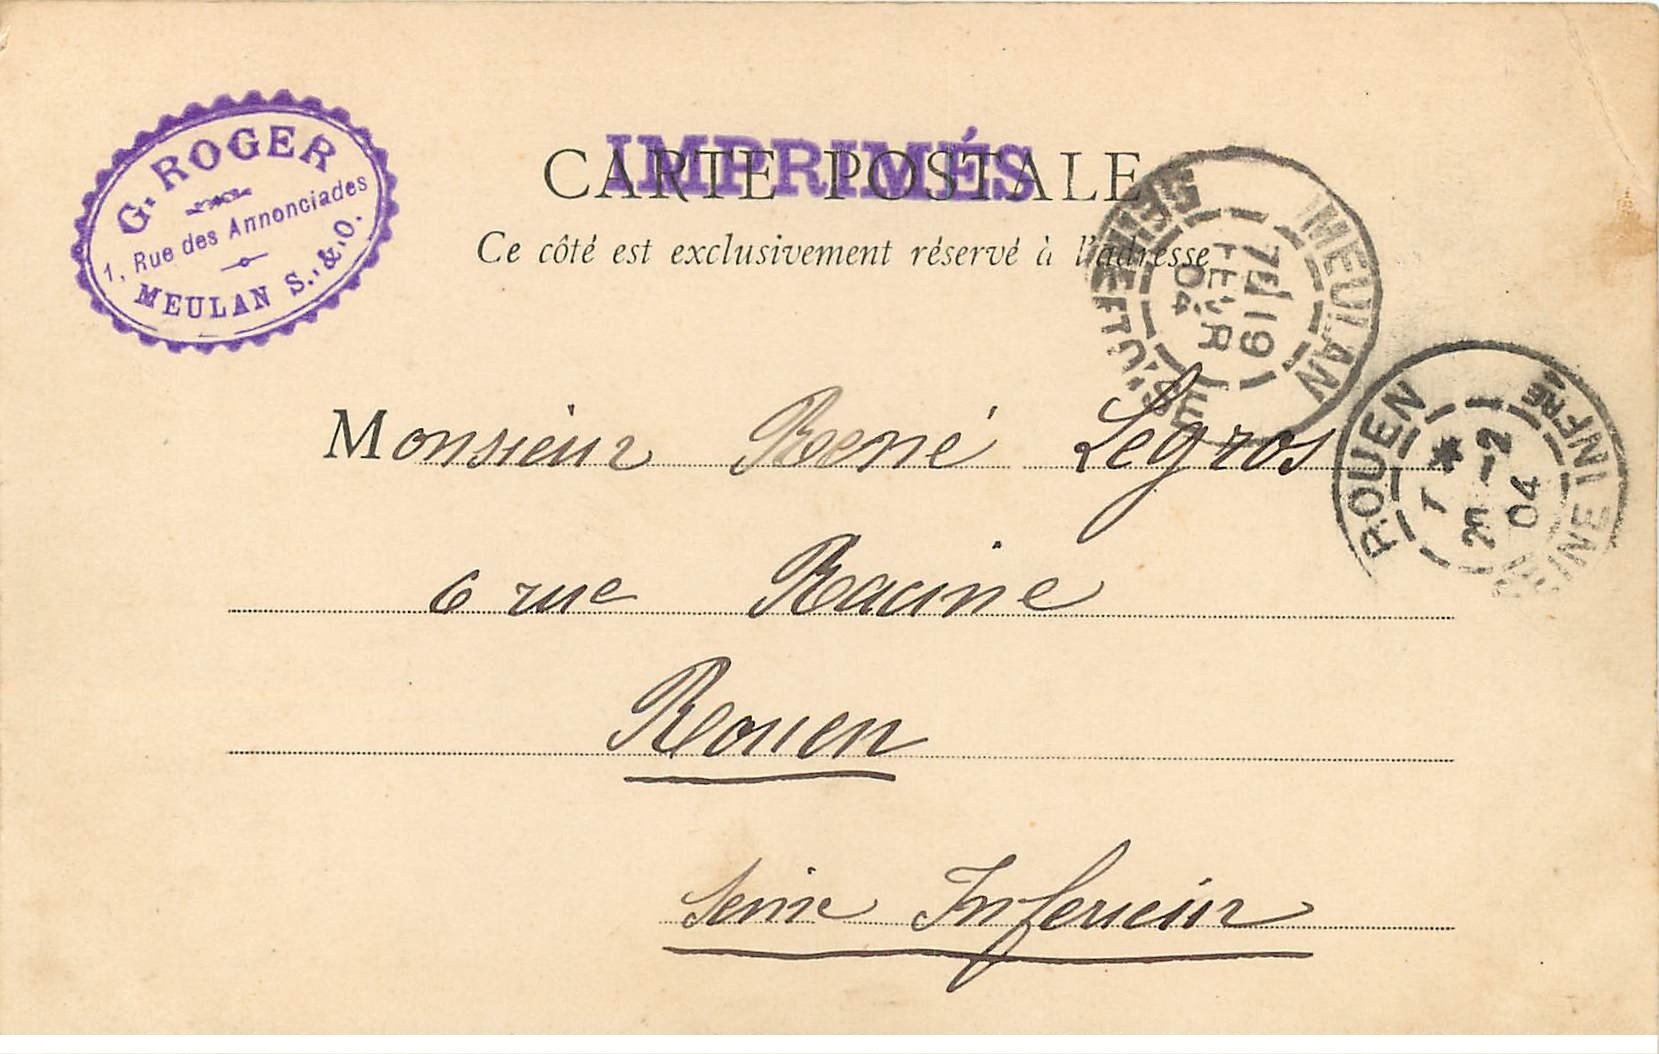 G. ROGER
1, Rue des Annonciades
MEULAN S.&O.
IMPRIMÉS
CARTE POSTALE
Ce côté est exclusivement réservé à l'adresse
MEULAN
7e 19
FEVR
04
SEINE ET OISE
ROUEN
20 -2
04
SEINE INFRE
Monsieur René Legros
6 rue Racine
Rouen
Seine Inferieur